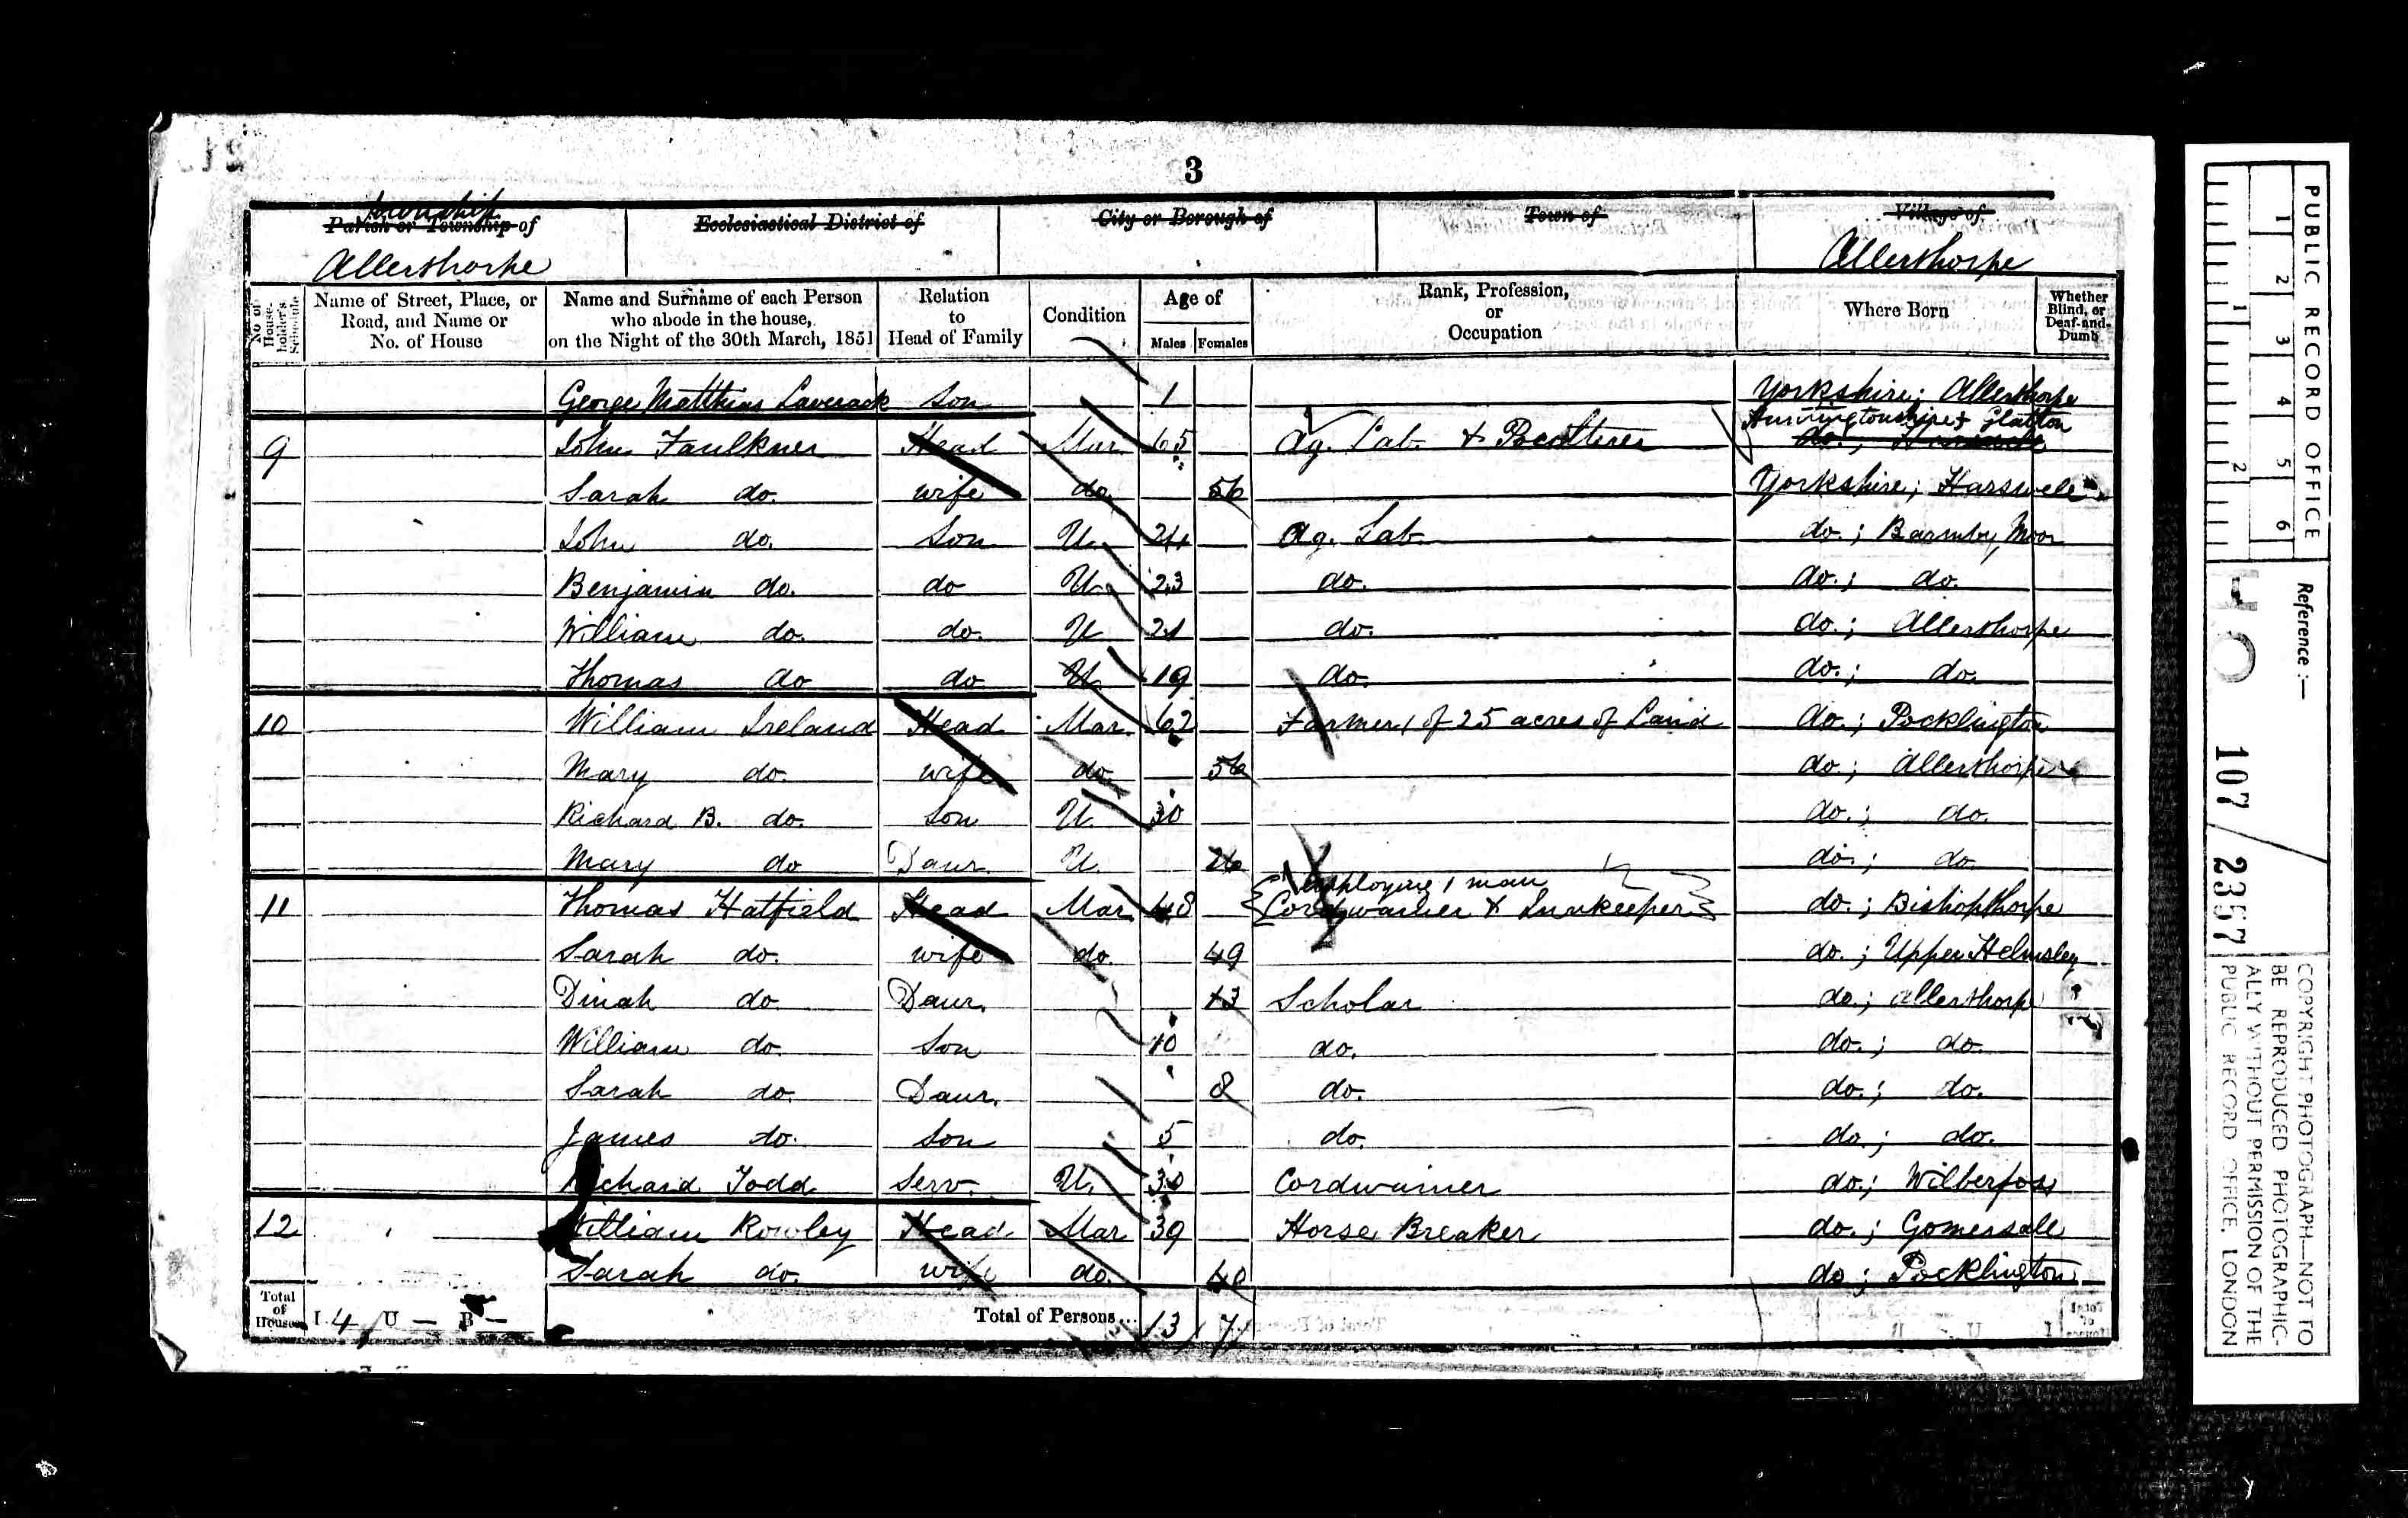 3
Township
Parish or Township of
Ecclesiastical District of
City or Borough of
Town of
Village of
Allerthorpe
Allerthorpe
No. of House-holder's Schedule
Name of Street, Place, or Road, and Name or No. of House
Name and Surname of each Person who abode in the house, on the Night of the 30th March, 1851
Relation to Head of Family
Condition
Age of
Males
Females
Rank, Profession, or Occupation
Where Born
Whether Blind, or Deaf-and-Dumb
George Matthias Laverack Son 1 Yorkshire; Allerthorpe
Huntingtonshire Glatton
9 John Faulkner Head Mar 65 Ag. Lab & Poulterer do.;
Sarah do. wife do. 56 Yorkshire; Harswell
John do. Son U. 24 Ag. Lab do.; Barmby Moor
Benjamin do. do U. 23 do. do.; do.
William do. do. U 21 do. do.; Allerthorpe
Thomas do do U 19 do. do.; do.
10 William Ireland Head Mar. 62 Farmer of 25 acres of Land do.; Pocklington
Mary do. wife do. 56 do.; Allerthorpe
Richard B. do. Son U. 30 do.; do.
Mary do Daur. U. 26 do.; do
employing 1 man
11 Thomas Hatfield Head Mar 48 Cordwainer & Innkeeper do.; Bishopthorpe
Sarah do. wife do. 49 do.; Upper Helmsley
Dinah do Daur. 13 Scholar do.; Allerthorpe
William do. Son 10 do. do.; do.
Sarah do. Daur. 8 do. do.; do.
James do. Son 5 do. do.; do.
Richard Todd Serv. U. 30 Cordwainer do.; Wilberfoss
12 William Rowley Head Mar 39 Horse Breaker do.; Gomersall
Sarah do. wife do. 40 do; Pocklington
Total of Houses I 4 U – B –
Total of Persons... 13 7
PUBLIC RECORD OFFICE
1 2 3 4 5 6
1 2
Reference :—
HO 107/2357
COPYRIGHT PHOTOGRAPH—NOT TO
BE REPRODUCED PHOTOGRAPHIC-
ALLY WITHOUT PERMISSION OF THE
PUBLIC RECORD OFFICE, LONDON